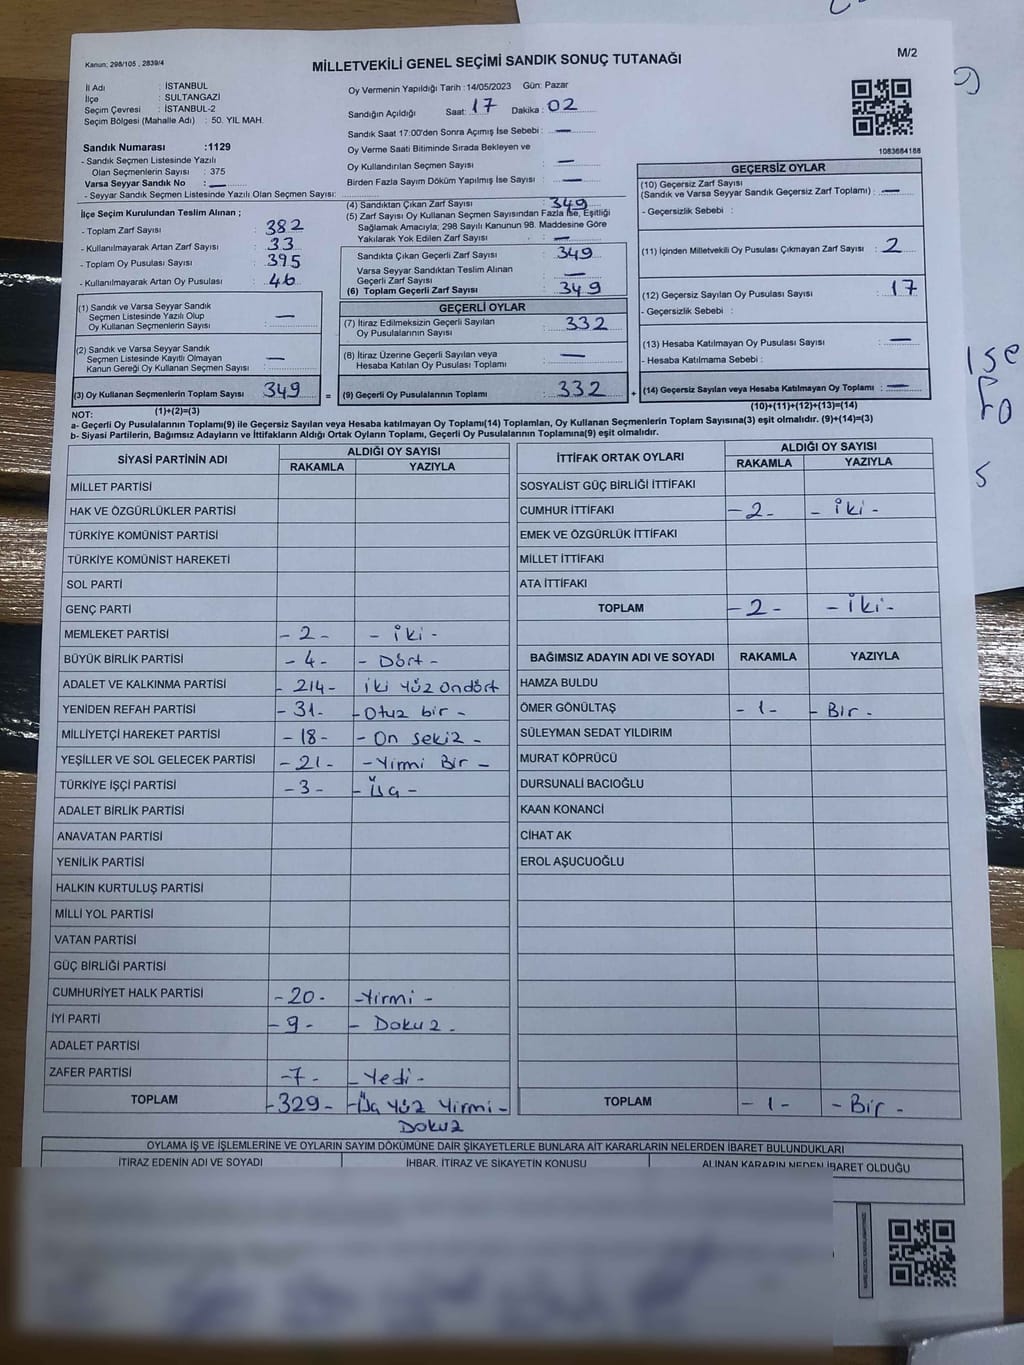 M/2
Kanun: 298/105 , 2839/4
MİLLETVEKİLİ GENEL SEÇİMİ SANDIK SONUÇ TUTANAĞI
İl Adı : İSTANBUL
İlçe : SULTANGAZİ
Seçim Çevresi : İSTANBUL-2
Seçim Bölgesi (Mahalle Adı) : 50. YIL MAH.
Sandık Numarası :1129
- Sandık Seçmen Listesinde Yazılı
Olan Seçmenlerin Sayısı : 375
Varsa Seyyar Sandık No : —
- Seyyar Sandık Seçmen Listesinde Yazılı Olan Seçmen Sayısı:
Oy Vermenin Yapıldığı Tarih :14/05/2023 Gün: Pazar
Sandığın Açıldığı Saat: 17 Dakika : 02
Sandık Saat 17:00'den Sonra Açımış İse Sebebi : —
Oy Verme Saati Bitiminde Sırada Bekleyen ve
Oy Kullandırılan Seçmen Sayısı : —
Birden Fazla Sayım Döküm Yapılmış İse Sayısı : —
1083684188
İlçe Seçim Kurulundan Teslim Alınan ;
- Toplam Zarf Sayısı : 382
- Kullanılmayarak Artan Zarf Sayısı : 33
- Toplam Oy Pusulası Sayısı : 395
- Kullanılmayarak Artan Oy Pusulası : 46
(1) Sandık ve Varsa Seyyar Sandık
Seçmen Listesinde Yazılı Olup
Oy Kullanan Seçmenlerin Sayısı : —
(2) Sandık ve Varsa Seyyar Sandık
Seçmen Listesinde Kayıtlı Olmayan
Kanun Gereği Oy Kullanan Seçmen Sayısı : —
(3) Oy Kullanan Seçmenlerin Toplam Sayısı : 349
(1)+(2)=(3)
(4) Sandıktan Çıkan Zarf Sayısı : 349
(5) Zarf Sayısı Oy Kullanan Seçmen Sayısından Fazla İse, Eşitliği
Sağlamak Amacıyla, 298 Sayılı Kanunun 98. Maddesine Göre
Yakılarak Yok Edilen Zarf Sayısı : —
Sandıkta Çıkan Geçerli Zarf Sayısı : 349
Varsa Seyyar Sandıktan Teslim Alınan
Geçerli Zarf Sayısı : —
(6) Toplam Geçerli Zarf Sayısı : 349
GEÇERLİ OYLAR
(7) İtiraz Edilmeksizin Geçerli Sayılan
Oy Pusulalarının Sayısı : 332
(8) İtiraz Üzerine Geçerli Sayılan veya
Hesaba Katılan Oy Pusulası Toplamı : —
= (9) Geçerli Oy Pusulalarının Toplamı : 332 +
GEÇERSİZ OYLAR
(10) Geçersiz Zarf Sayısı
(Sandık ve Varsa Seyyar Sandık Geçersiz Zarf Toplamı) : —
- Geçersizlik Sebebi :
(11) İçinden Milletvekili Oy Pusulası Çıkmayan Zarf Sayısı : 2
(12) Geçersiz Sayılan Oy Pusulası Sayısı : 17
- Geçersizlik Sebebi :
(13) Hesaba Katılmayan Oy Pusulası Sayısı : —
- Hesaba Katılmama Sebebi :
(14) Geçersiz Sayılan veya Hesaba Katılmayan Oy Toplamı : —
(10)+(11)+(12)+(13)=(14)
NOT:
a- Geçerli Oy Pusulalarının Toplamı(9) ile Geçersiz Sayılan veya Hesaba katılmayan Oy Toplamı(14) Toplamları, Oy Kullanan Seçmenlerin Toplam Sayısına(3) eşit olmalıdır. (9)+(14)=(3)
b- Siyasi Partilerin, Bağımsız Adayların ve İttifakların Aldığı Ortak Oyların Toplamı, Geçerli Oy Pusulalarının Toplamına(9) eşit olmalıdır.
SİYASİ PARTİNİN ADI ALDIĞI OY SAYISI
RAKAMLA YAZIYLA
MİLLET PARTİSİ
HAK VE ÖZGÜRLÜKLER PARTİSİ
TÜRKİYE KOMÜNİST PARTİSİ
TÜRKİYE KOMÜNİST HAREKETİ
SOL PARTİ
GENÇ PARTİ
MEMLEKET PARTİSİ - 2 - - iki -
BÜYÜK BİRLİK PARTİSİ - 4 - - Dört -
ADALET VE KALKINMA PARTİSİ - 214 - iki yüz ondört
YENİDEN REFAH PARTİSİ - 31 - - Otuz bir -
MİLLİYETÇİ HAREKET PARTİSİ - 18 - - On sekiz -
YEŞİLLER VE SOL GELECEK PARTİSİ - 21 - - Yirmi Bir -
TÜRKİYE İŞÇİ PARTİSİ - 3 - - Üç -
ADALET BİRLİK PARTİSİ
ANAVATAN PARTİSİ
YENİLİK PARTİSİ
HALKIN KURTULUŞ PARTİSİ
MİLLİ YOL PARTİSİ
VATAN PARTİSİ
GÜÇ BİRLİĞİ PARTİSİ
CUMHURİYET HALK PARTİSİ - 20 - - Yirmi -
İYİ PARTİ - 9 - - Dokuz -
ADALET PARTİSİ
ZAFER PARTİSİ - 7 - - Yedi -
TOPLAM - 329 - - Üç yüz Yirmi -
Dokuz
İTTİFAK ORTAK OYLARI ALDIĞI OY SAYISI
RAKAMLA YAZIYLA
SOSYALİST GÜÇ BİRLİĞİ İTTİFAKI
CUMHUR İTTİFAKI - 2 - - iki -
EMEK VE ÖZGÜRLÜK İTTİFAKI
MİLLET İTTİFAKI
ATA İTTİFAKI
TOPLAM - 2 - - iki -
BAĞIMSIZ ADAYIN ADI VE SOYADI RAKAMLA YAZIYLA
HAMZA BULDU
ÖMER GÖNÜLTAŞ - 1 - - Bir -
SÜLEYMAN SEDAT YILDIRIM
MURAT KÖPRÜCÜ
DURSUNALİ BACIOĞLU
KAAN KONANCİ
CİHAT AK
EROL AŞUCUOĞLU
TOPLAM - 1 - - Bir -
OYLAMA İŞ VE İŞLEMLERİNE VE OYLARIN SAYIM DÖKÜMÜNE DAİR ŞİKAYETLERLE BUNLARA AİT KARARLARIN NELERDEN İBARET BULUNDUKLARI
İTİRAZ EDENİN ADI VE SOYADI İHBAR, İTİRAZ VE ŞİKAYETİN KONUSU ALINAN KARARIN NEDEN İBARET OLDUĞU
ise